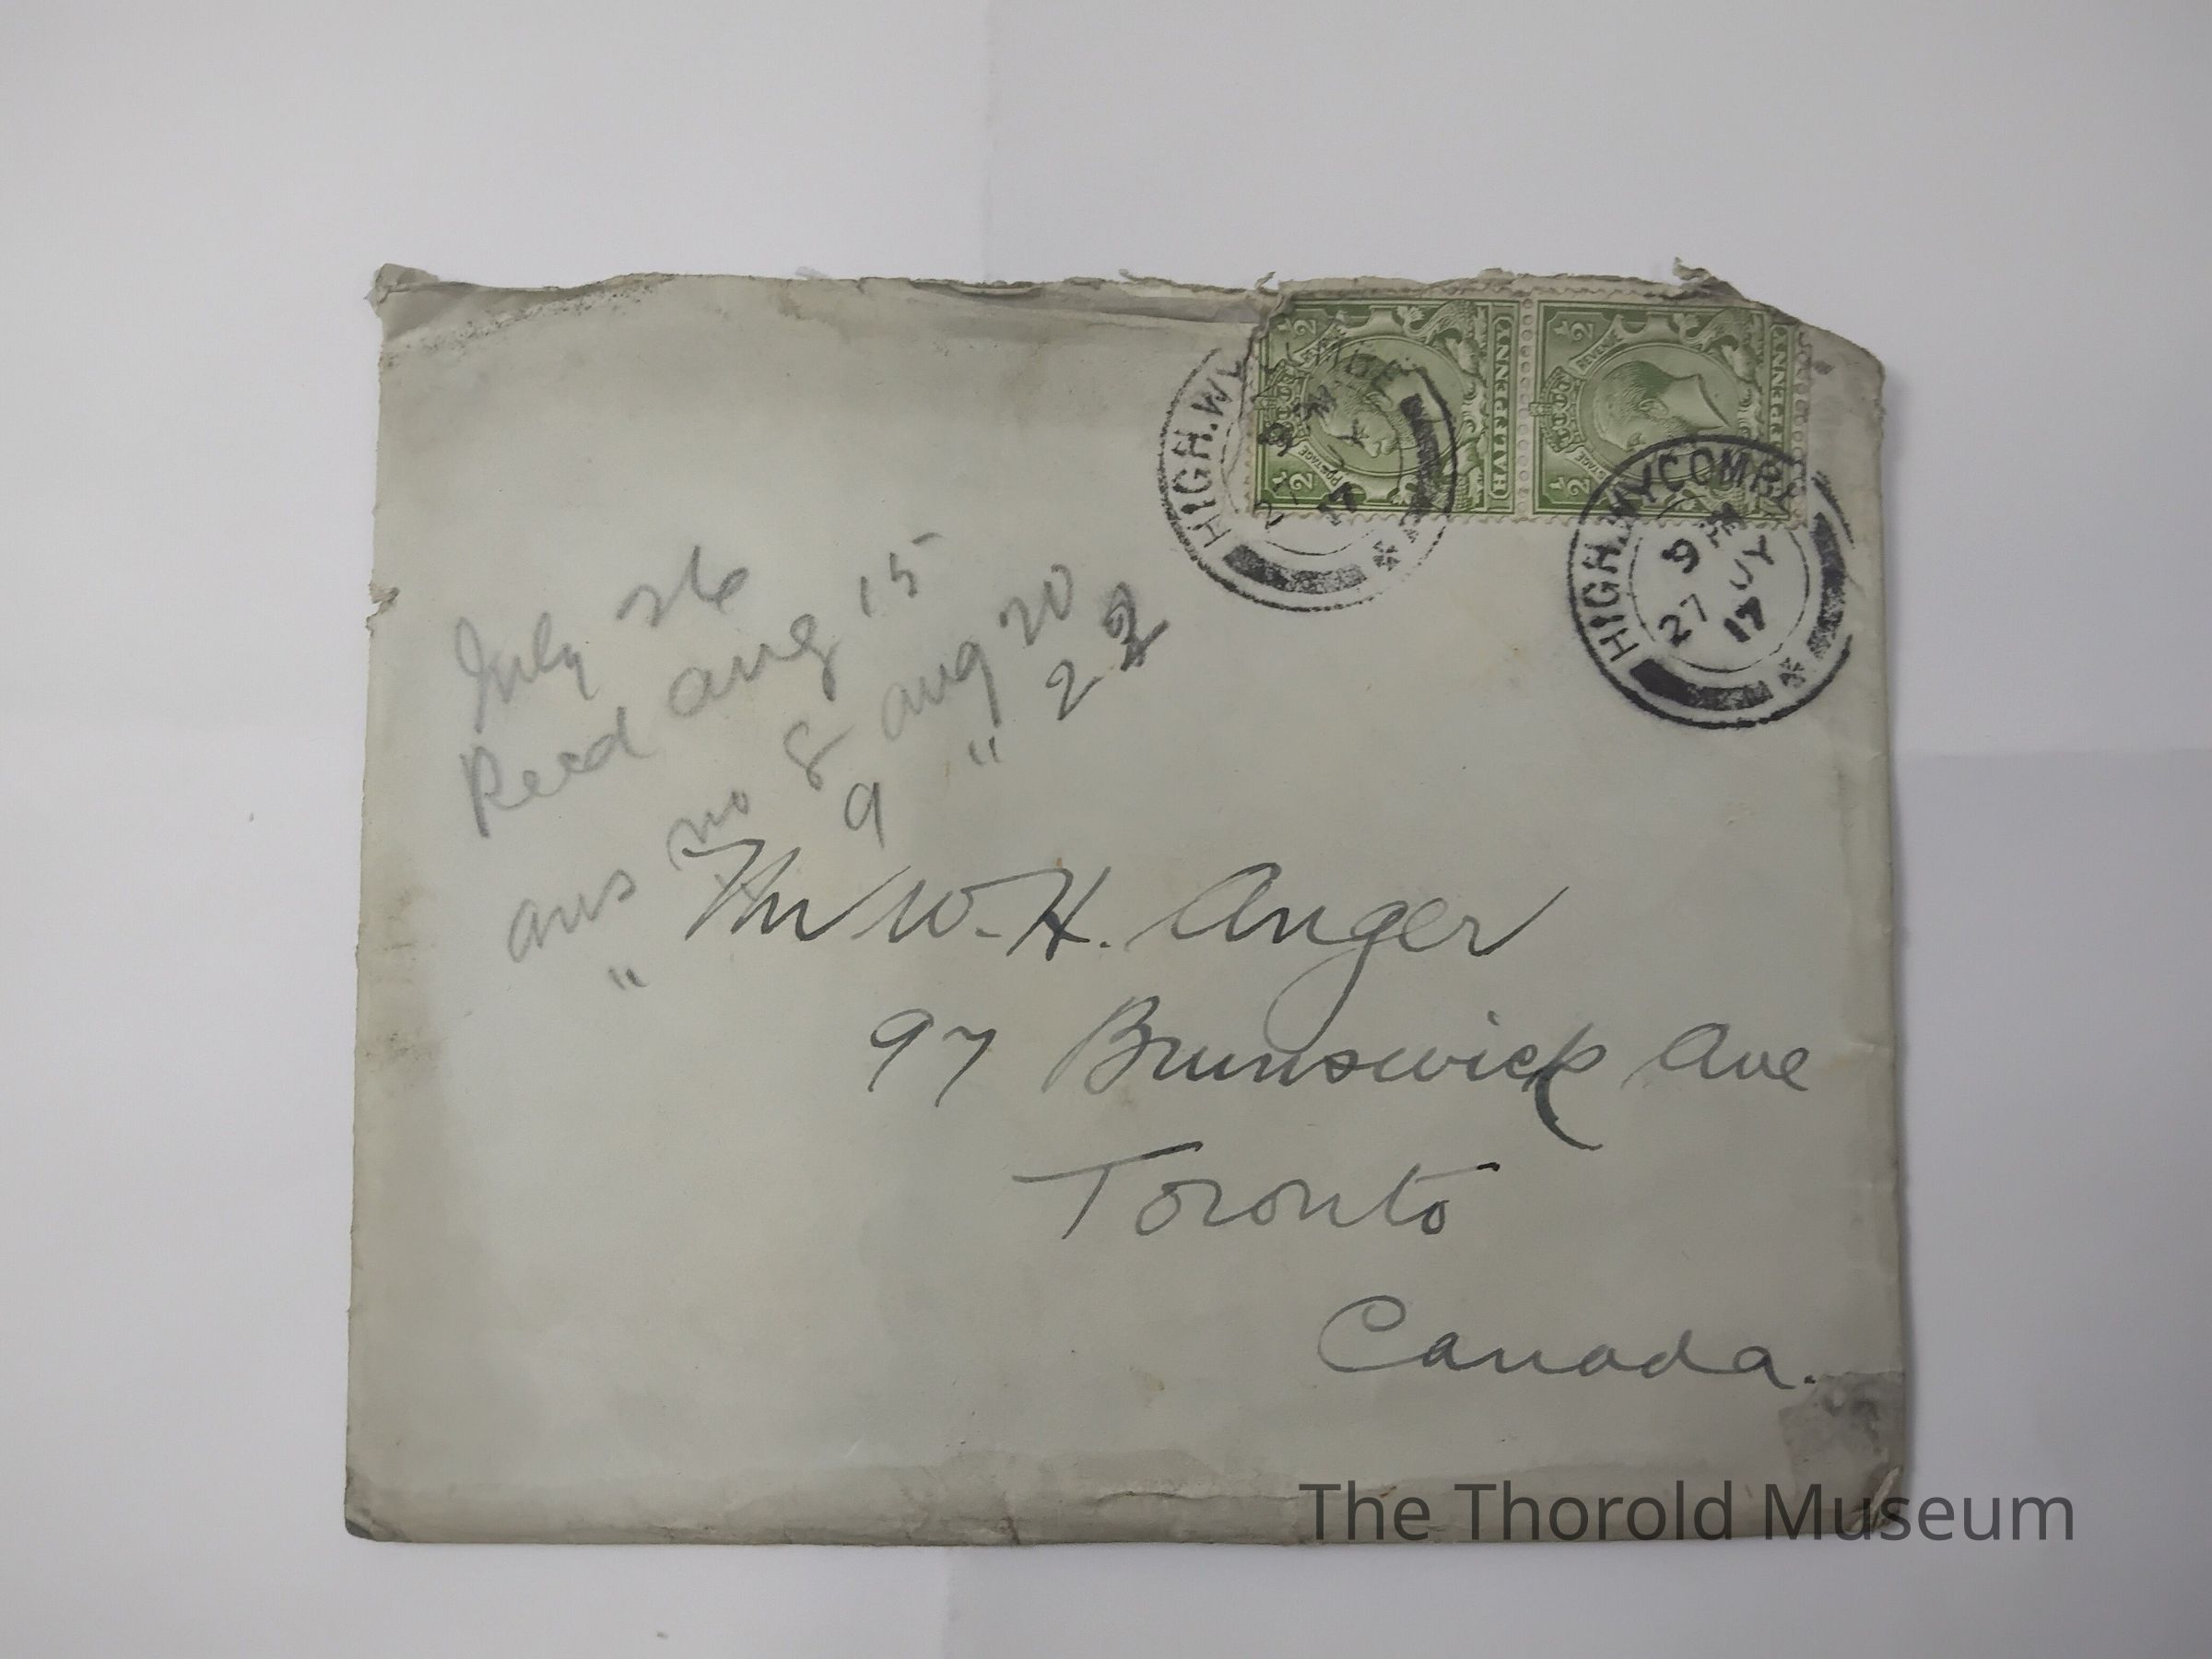 HIGH.WYCOMBE
27 JY
17
HALFPENNY
POSTAGE
1/2 1/2
HALFPENNY
REVENUE
POSTAGE
1/2 1/2
HIGH.WYCOMBE
9 PM
27 JY
17
July 26
Recd Aug 15
ans no 8 Aug 20
" 9 " 22
Mr W. H. Anger
97 Brunswick Ave
Toronto
Canada.
The Thorold Museum